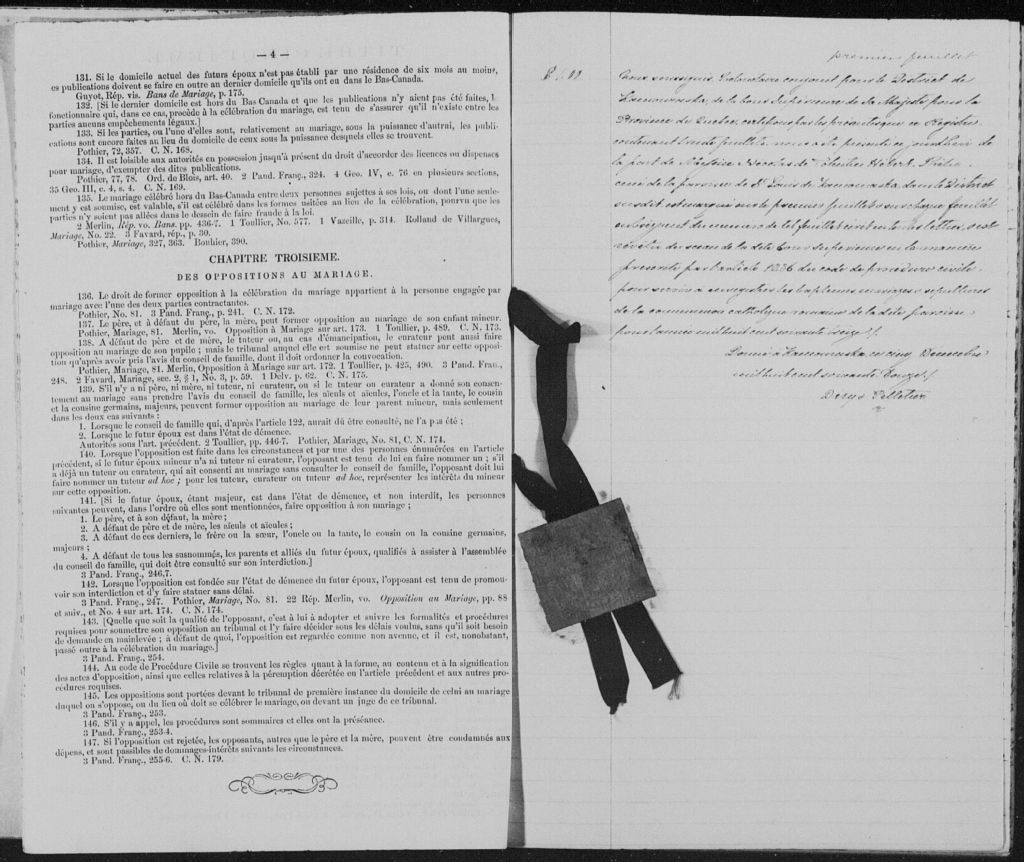 — 4 —
131. Si le domicile actuel des futurs époux n'est pas établi par une résidence de six mois au moins,
ces publications doivent se faire en outre au dernier domicile qu'ils ont eu dans le Bas-Canada.
Guyot, Rép. vis. Bans de Mariage, p. 175.
132. [Si le dernier domicile est hors du Bas Canada et que les publications n'y aient pas été faites, l
fonctionnaire qui, dans ce cas, procède à la célébration du mariage, est tenu de s'assurer qu'il n'existe entre les
parties aucuns empêchements légaux.]
133. Si les parties, ou l'une d'elles sont, relativement au mariage, sous la puissance d'autrui, les publi-
cations sont encore faites au lieu du domicile de ceux sous la puissance desquels elles se trouvent.
Pothier, 72, 357. C. N. 168.
134. Il est loisible aux autorités en possession jusqu'à présent du droit d'accorder des licences ou dispenses
pour mariage, d'exempter des dites publications.
Pothier, 77, 78. Ord. de Blois, art. 40. 2 Pand. Franç., 324. 4 Geo. IV, c. 76 en plusieurs sections,
35 Geo. III, c. 4, s. 4. C. N. 169.
135. Le mariage célébré hors du Bas-Canada entre deux personnes sujettes à ses lois, ou dont l'une seule-
ment y est soumise, est valable, s'il est célébré dans les formes usitées au lieu de la célébration, pourvu que les
parties n'y soient pas allées dans le dessein de faire fraude à la loi.
2 Merlin, Rép. vo. Bans. pp. 436-7. 1 Toullier, No. 577. 1 Vazeille, p. 314. Rolland de Villargues,
Mariage, No. 22. 3 Favard, rép., p. 30.
Pothier, Mariage, 327, 363. Bouhier, 390.
CHAPITRE TROISIEME.
DES OPPOSITIONS AU MARIAGE.
136. Le droit de former opposition à la célébration du mariage appartient à la personne engagée par
mariage avec l'une des deux parties contractantes.
Pothier, No. 81. 3 Pand. Franç., p. 241. C. N. 172.
137. Le père, et à défaut du père, la mère, peut former opposition au mariage de son enfant mineur.
Pothier, Mariage, 81. Merlin, vo. Opposition à Mariage sur art. 173. 1 Toullier, p. 489. C. N. 173.
138. A défaut de père et de mère, le tuteur ou, au cas d'émancipation, le curateur peut aussi faire
opposition au mariage de son pupile ; mais le tribunal auquel elle est soumise ne peut statuer sur cette opposi-
tion qu'après avoir pris l'avis du conseil de famille, dont il doit ordonner la convocation.
Pothier, Mariage, 81. Merlin, Opposition à Mariage sur art. 172. 1 Toullier, p. 425, 490. 3 Pand. Fran.,
248. 2 Favard, Mariage, sec. 2, § 1, No. 3, p. 59. 1 Delv. p. 62. C. N. 175.
139. S'il n'y a ni père, ni mère, ni tuteur, ni curateur, ou si le tuteur ou curateur a donné son consen-
tement au mariage sans prendre l'avis du conseil de famille, les aïeuls et aïeules, l'oncle et la tante, le cousin
et la cousine germains, majeurs, peuvent former opposition au mariage de leur parent mineur, mais seulement
dans les deux cas suivants :
1. Lorsque le conseil de famille qui, d'après l'article 122, aurait dû être consulté, ne l'a pas été ;
2. Lorsque le futur époux est dans l'état de démence.
Autorités sous l'art. précédent. 2 Toullier, pp. 446-7. Pothier, Mariage, No. 81, C. N. 174.
140. Lorsque l'opposition est faite dans les circonstances et par une des personnes énumérées en l'article
précédent, si le futur époux mineur n'a ni tuteur ni curateur, l'opposant est tenu de lui en faire nommer un ; s'il
a déjà un tuteur ou curateur, qui ait consenti au mariage sans consulter le conseil de famille, l'opposant doit lui
faire nommer un tuteur ad hoc ; pour les tuteur, curateur ou tuteur ad hoc, représenter les intérêts du mineur
sur cette opposition.
141. [Si le futur époux, étant majeur, est dans l'état de démence, et non interdit, les personnes
suivantes peuvent, dans l'ordre où elles sont mentionnées, faire opposition à son mariage ;
1. Le père, et à son défaut, la mère ;
2. A défaut de père et de mère, les aïeuls et aïeules ;
3. A défaut de ces derniers, le frère ou la sœur, l'oncle ou la tante, le cousin ou la cousine germains,
majeurs ;
4. A défaut de tous les susnommés, les parents et alliés du futur époux, qualifiés à assister à l'assemblée
du conseil de famille, qui doit être consulté sur son interdiction.]
3 Pand. Franç., 246,7.
142. Lorsque l'opposition est fondée sur l'état de démence du futur époux, l'opposant est tenu de promou-
voir son interdiction et d'y faire statuer sans délai.
3 Pand. Franç., 247. Pothier, Mariage, No. 81. 22 Rép. Merlin, vo. Opposition au Mariage, pp. 88
et suiv., et No. 4 sur art. 174. C. N. 174.
143. [Quelle que soit la qualité de l'opposant, c'est à lui à adopter et suivre les formalités et procédures
requises pour soumettre son opposition au tribunal et l'y faire décider sous les délais voulus, sans qu'il soit besoin
de demande en mainlevée ; à défaut de quoi, l'opposition est regardée comme non avenue, et il est, nonobstant,
passé outre à la célébration du mariage.]
3 Pand. Franç., 254.
144. Au code de Procédure Civile se trouvent les règles quant à la forme, au contenu et à la signification
des actes d'opposition, ainsi que celles relatives à la péremption décrétée en l'article précédent et aux autres pro-
cédures requises.
145. Les oppositions sont portées devant le tribunal de première instance du domicile de celui au mariage
duquel on s'oppose, ou du lieu où doit se célébrer le mariage, ou devant un juge de ce tribunal.
3 Pand. Franç., 253.
146. S'il y a appel, les procédures sont sommaires et elles ont la préséance.
3 Pand. Franç., 253-4.
147. Si l'opposition est rejetée, les opposants, autres que le père et la mère, peuvent être condamnés aux
dépens, et sont passibles de dommages-intérêts suivants les circonstances.
3 Pand. Franç., 255-6. C. N. 179.
premier feuillet
Nous soussignés Protonotaire conjoint pour le District de
Kamouraska, de la Cour Supérieure de Sa Majesté pour la
Province de Québec, certifions par les présentes que ce Registre
contenant feuillets, nous a été présenté ce jourd'hui de
la part de Messire Nicolas de Tolentin Hébert, Prêtre
curé de la paroisse de St Louis de Kamouraska, dans le District
susdit est marqué sur le premier feuillet et sur chaque feuillet
subséquent du numéro de tel feuillet écrit en toutes lettres, est
revêtu du sceau de la dite Cour Supérieure en la manière
prescrite par l'article 1236 du code de procédure civile
pour servir à enregistrer les baptêmes mariages et sépultures
de la communion catholique romaine de la dite paroisse
pour l'année mil huit cent soixante treize //.
Donné à Kamouraska ce cinq Décembre
mil huit cent soixante douze //
Desy & Pelletier